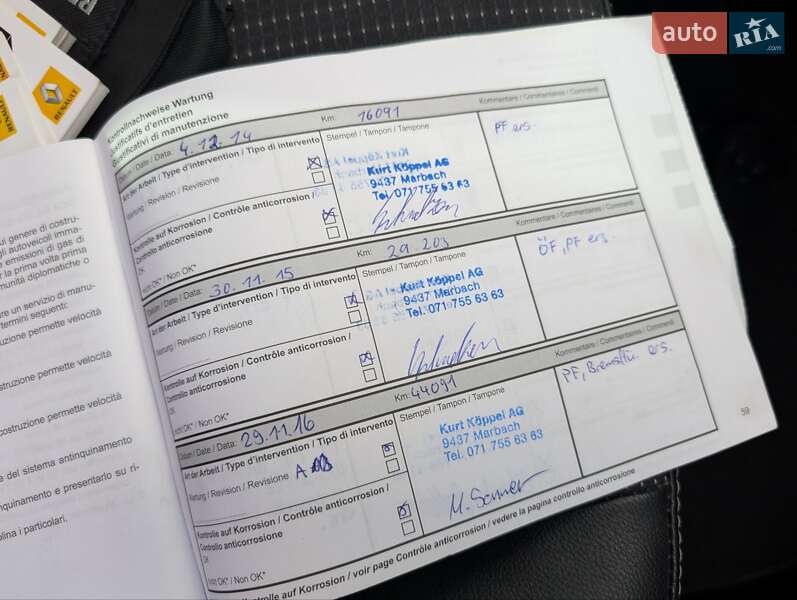 auto RIA .com
RENAULT
RENAULT
Kontrollnachweise Wartung
Justificatifs d'entretien
Giustificativi di manutenzione
Datum / Date / Data: 4.12.14 Km: 16091 Kommentare / Commentaires / Commenti
Art der Arbeit / Type d'intervention / Tipo di intervento
Wartung / Revision / Revisione
Stempel / Tampon / Tampone
PF ers.
Kurt Köppel AG
9437 Marbach
Tel. 071 755 63 63
Kontrolle auf Korrosion / Contrôle anticorrosion /
Controllo anticorrosione
OK
Nicht OK* / Non OK*
Datum / Date / Data: 30.11.15 Km: 29.203 Kommentare / Commentaires / Commenti
Art der Arbeit / Type d'intervention / Tipo di intervento
Wartung / Revision / Revisione
Stempel / Tampon / Tampone
ÖF, PF ers.
Kurt Köppel AG
9437 Marbach
Tel. 071 755 63 63
Kontrolle auf Korrosion / Contrôle anticorrosion /
Controllo anticorrosione
OK
Nicht OK* / Non OK*
Datum / Date / Data: 29.11.16 Km: 44091 Kommentare / Commentaires / Commenti
Art der Arbeit / Type d'intervention / Tipo di intervento
Wartung / Revision / Revisione A
Stempel / Tampon / Tampone
PF, Bremsflü. ers.
Kurt Köppel AG
9437 Marbach
Tel. 071 755 63 63
Kontrolle auf Korrosion / Contrôle anticorrosion /
Controllo anticorrosione
Nicht OK* / Non OK*
Kontrolle auf Korrosion / voir page Contrôle anticorrosion / vedere la pagina controllo anticorrosione
59
genere di costru-
gli autoveicoli imma-
emissioni di gas di
per la prima volta prima
comunità diplomatiche o
un servizio di manu-
termini seguenti:
costruzione permette velocità
costruzione permette velocità
costruzione permette velocità
del sistema antinquinamento
inquinamento e presentarlo su ri-
i particolari.